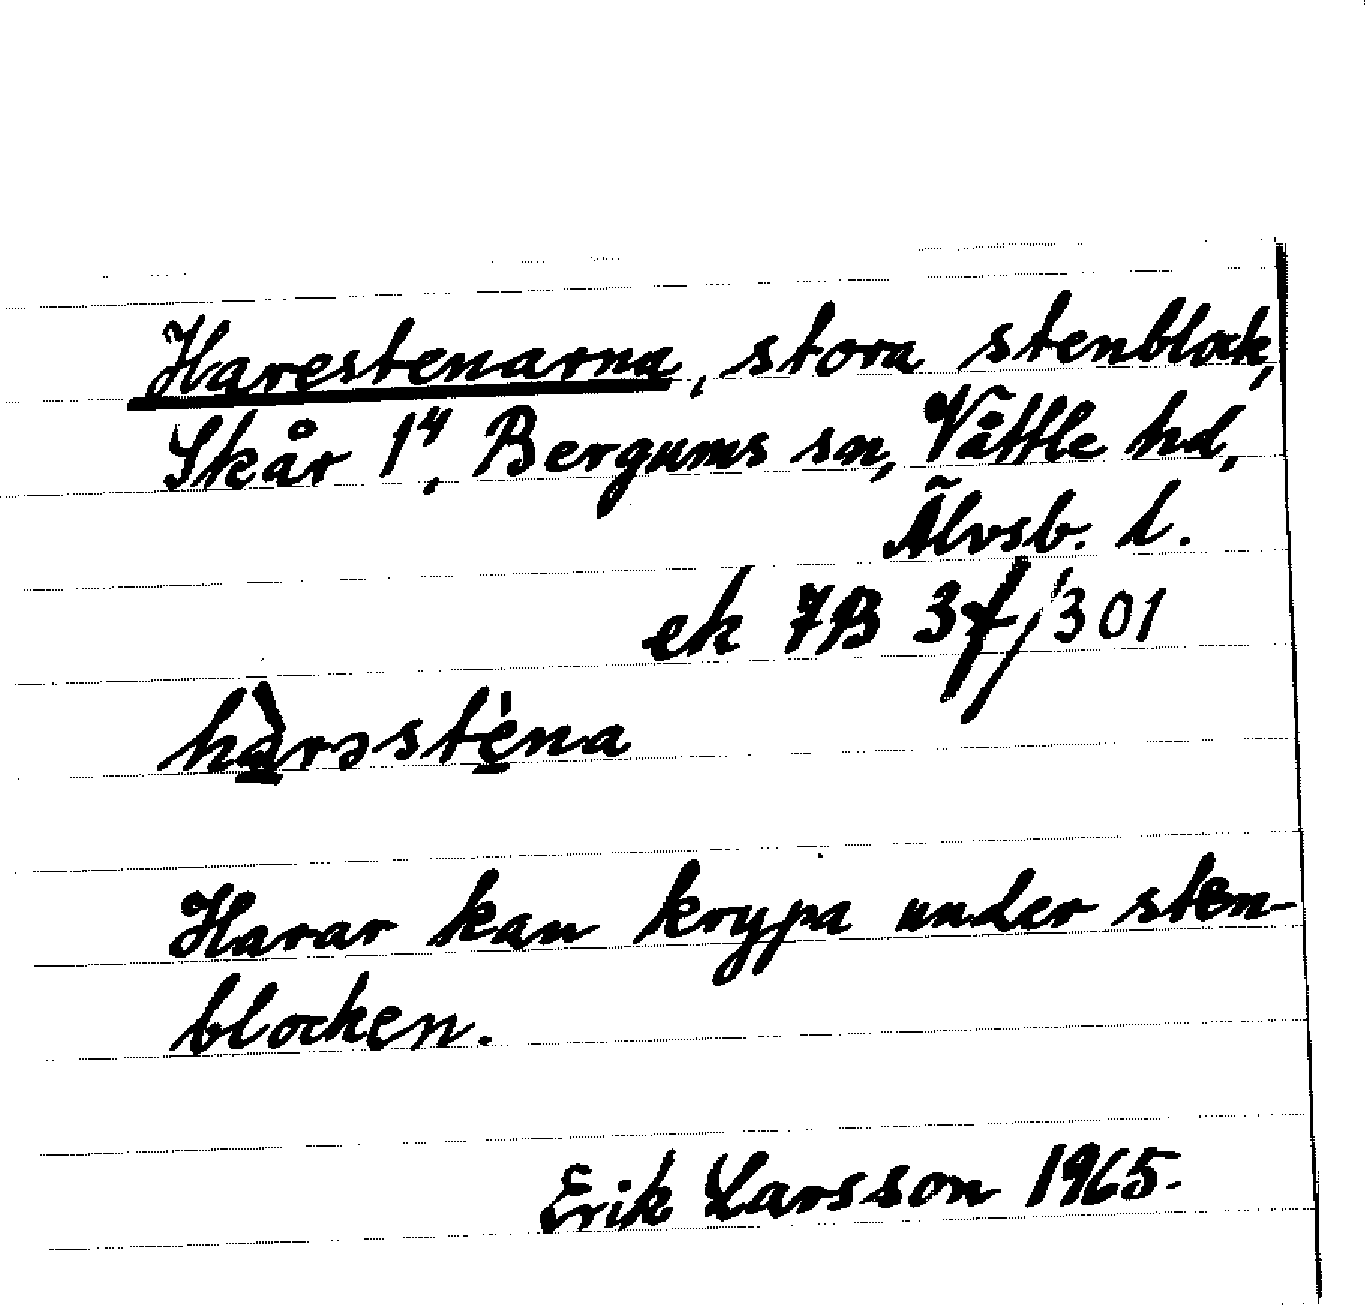 Harestenarna, stora stenblock,
Skår 1⁴, Bergums sn, Vättle hd,
Älvsb. l.
ek 7B 3f/301
hàrəste̍na
Harar kan krypa under sten-
blocken.
Erik Larsson 1965.